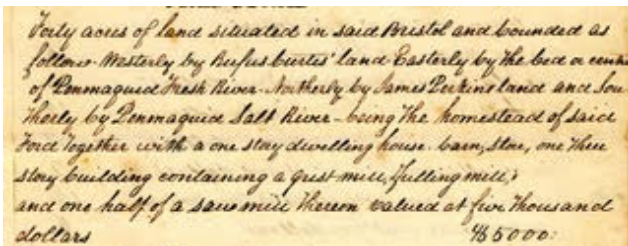 Forty acres of land situated in said Bristol and bounded as
follows. Westerly by Rufus Curtis' land Easterly by the bed or
of Penmaquid Fresh River - Northerly by James Perkins land and Sou
therly by Penmaquid Salt River - being the homestead of said
Ford Together with a one story dwelling house. barn, store, one three
story building containing a grist mill, fulling mill,
and one half of a saw mill thereon valued at five thousand
dollars $5000: